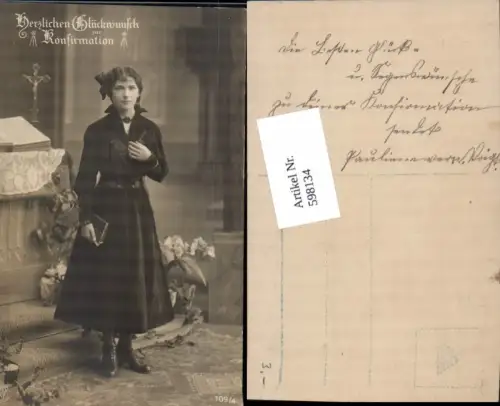 Herzlichen Glückwunsch
zur
Konfirmation
die besten Glück-
u. Segenswünsche
zu deiner Konfirmation
sendet
Artikel Nr.
598134
3,-